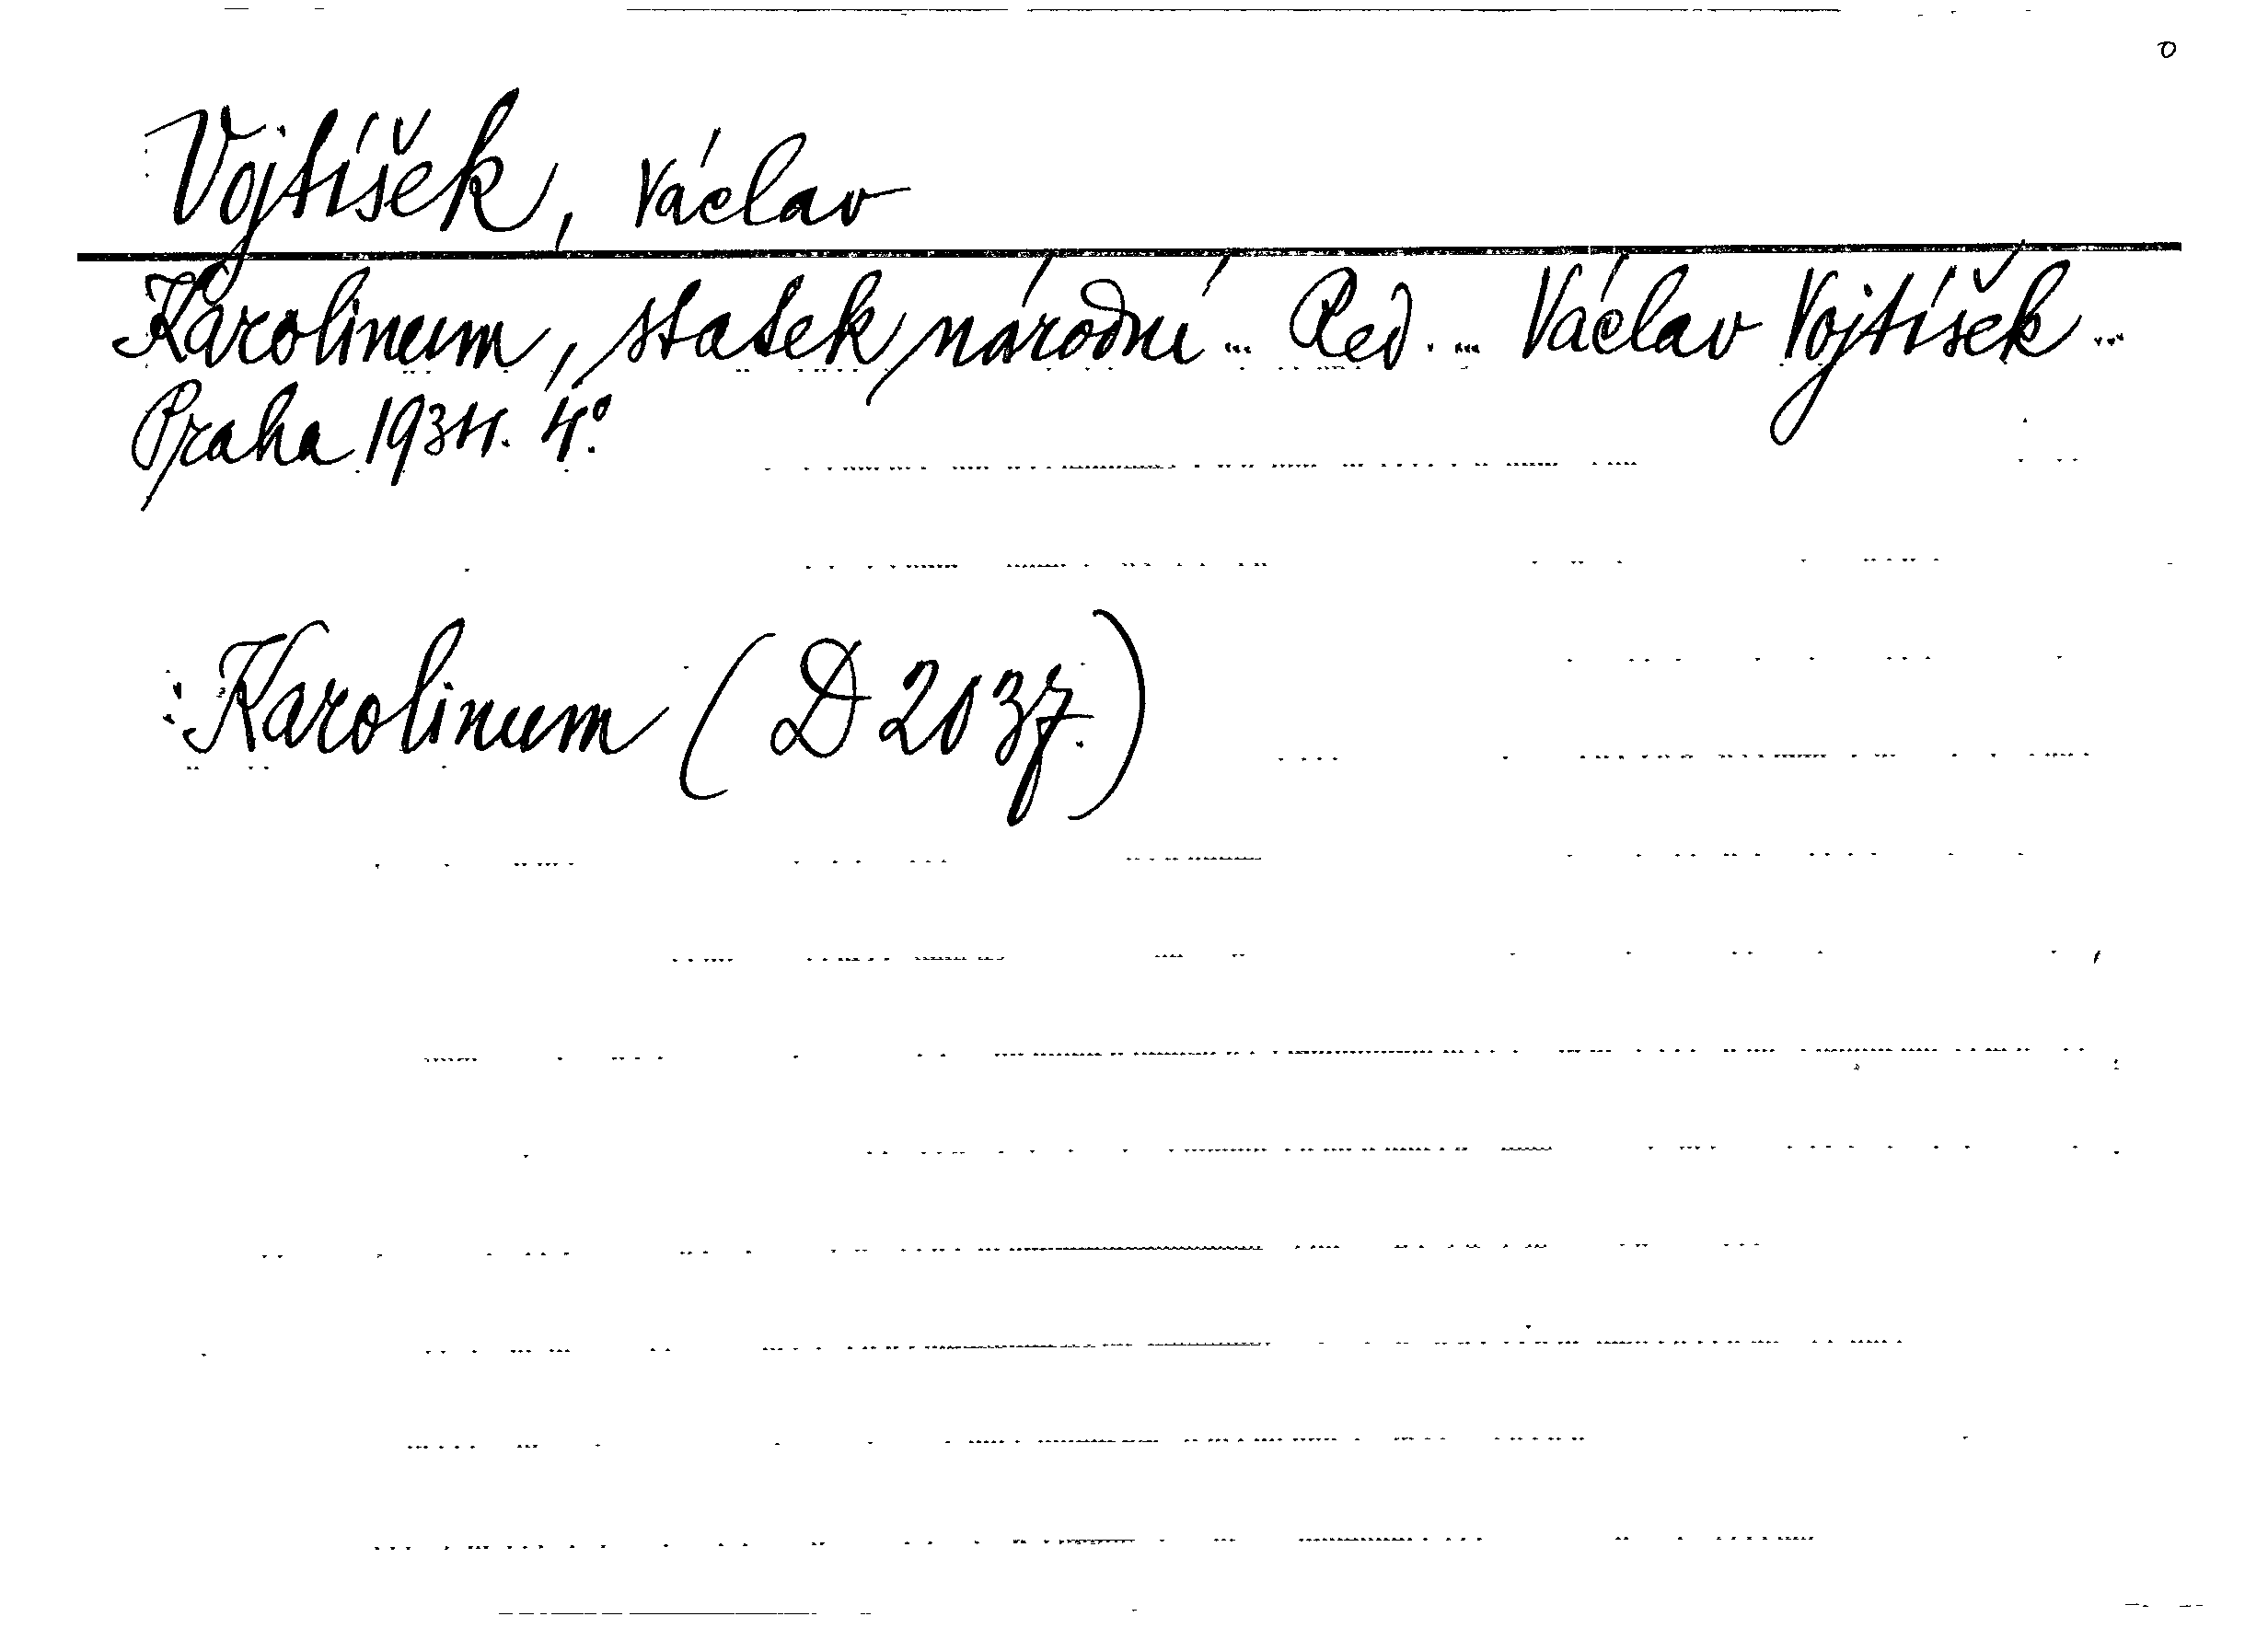 Vojtíšek, Václav
Karolinum, statek národní ... Red. ... Václav Vojtíšek ...
Praha 1934. 4°.
Karolinum (D 2037.)